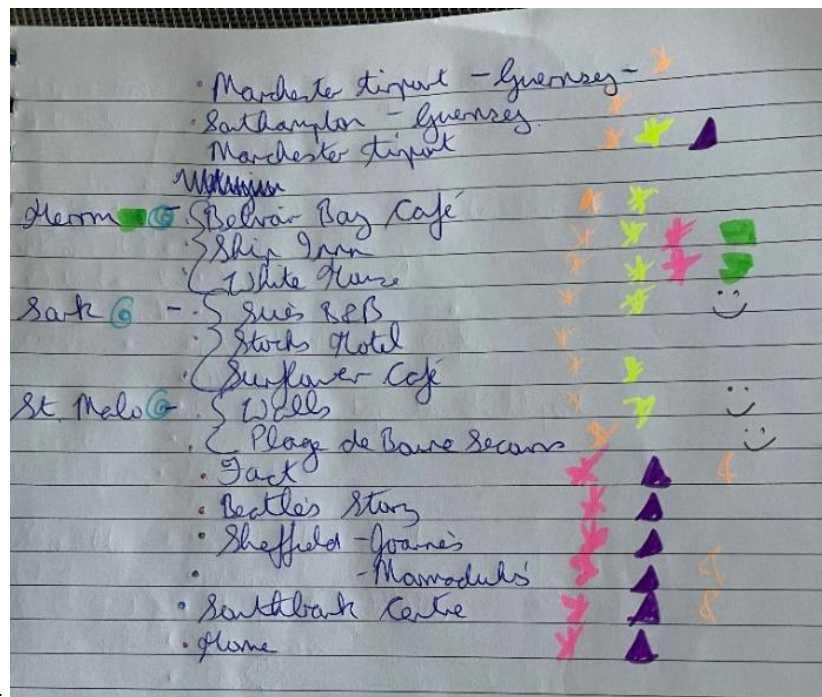 · Manchester Airport - Guernsey -
· Southampton - Guernsey.
Manchester Airport
Herm - · { Belvoir Bay Café
· { Ship Inn
· { White House
Sark - · { Sue's B&B
· { Stocks Hotel
· { Sunflower Café
St. Malo - · { Walls
· { Plage de Bonne Secours
· Fact
· Beatles Story
· Sheffield - Joanne's
· - Marmaduke's
· Southbank Centre
· Home